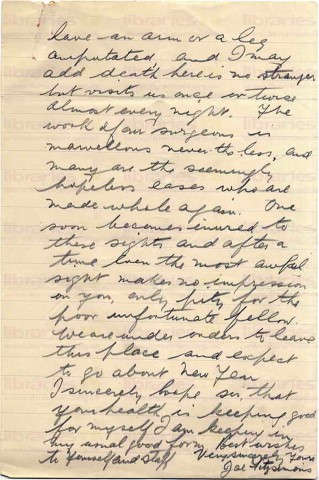 have an arm or a leg
amputated, and I may
add death here is no stranger
but visits us once or twice
almost every night. The
work of our surgeons is
marvellous never the less, and
many are the seemingly
hopeless cases who are
made whole again. One
soon becomes inured to
these sights and after a
time even the most awful
sight makes no impression
on you, only pity for the
poor unfortunate fellow.
We are under orders to leave
this place and expect
to go about New Year
I sincerely hope sir, that
your health is keeping good
for myself I am keeping in
my usual good form Best wishes
to Yourself and Staff Very sincerely Yours
Joe Fitzsimons